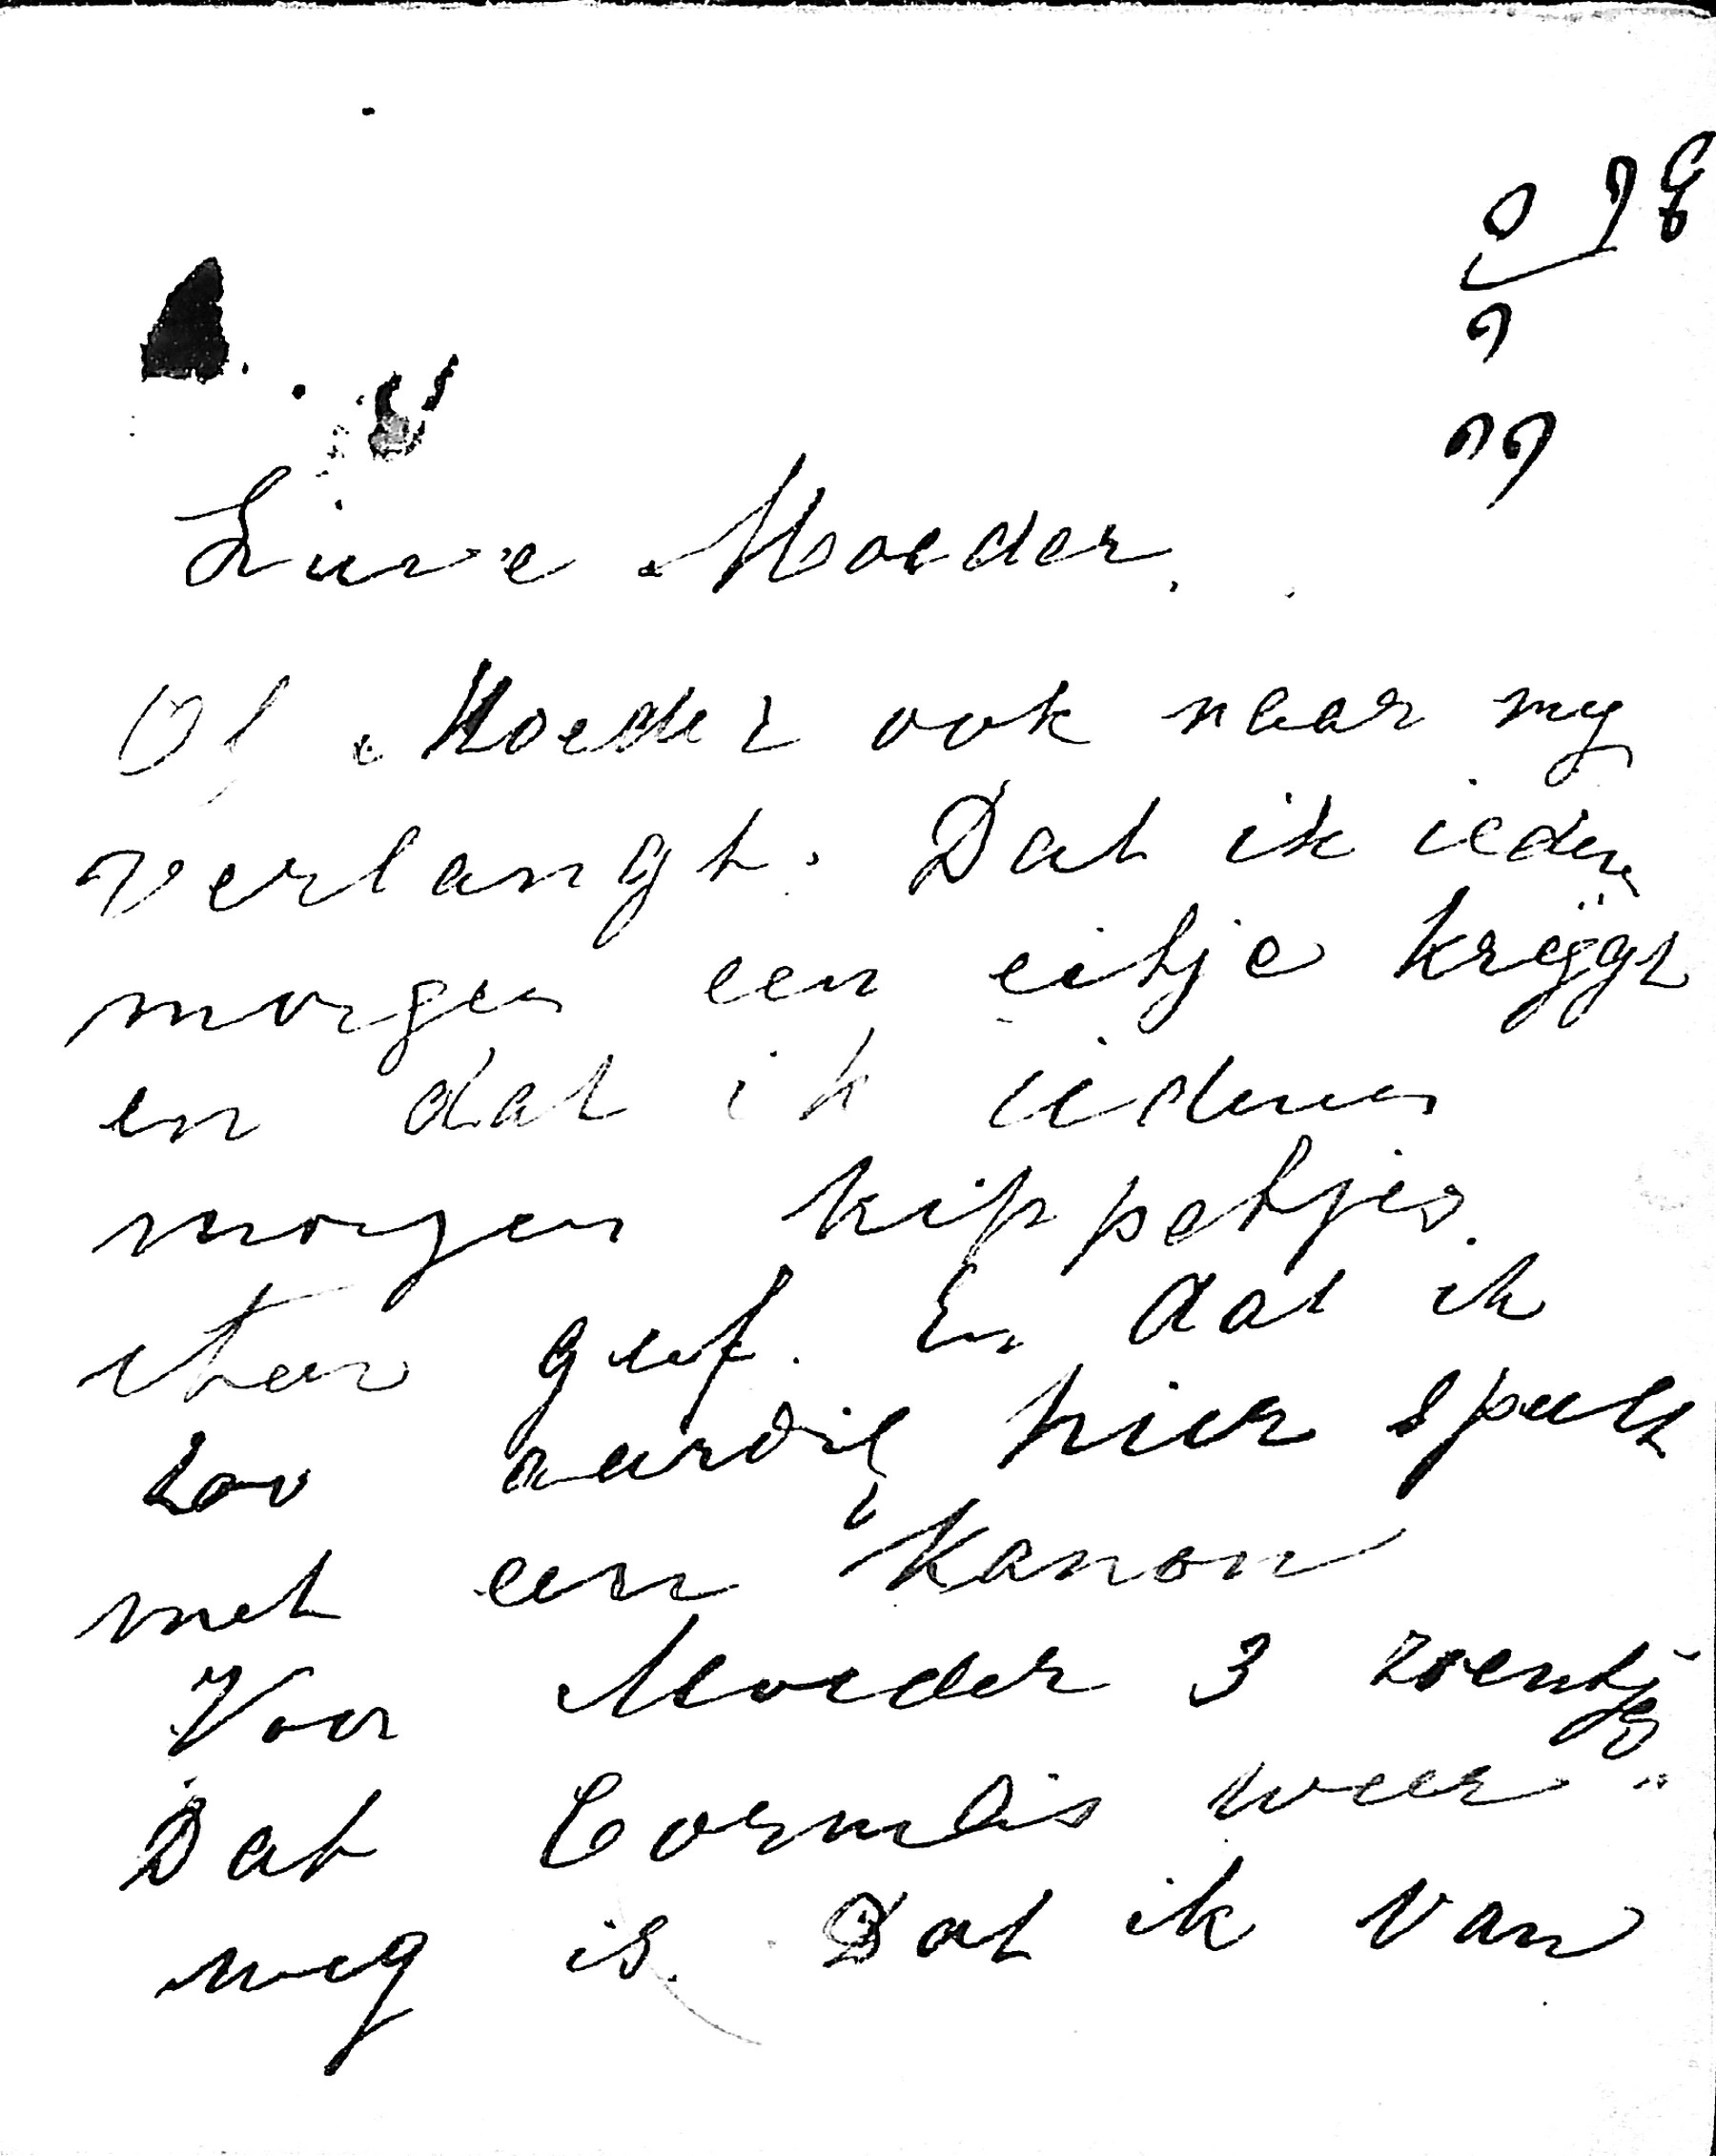 Lieve Moeder.
Of Moeder ook naar my
verlangt. Dat ik ieder
morgen een eitje krijgt
en dat ik iederen
morgen kippetjes
eten geef. En dat ik
zoo aardig hier speelt
met een kanon
Voor Moeder 3 zoentjes
Dat Cornelis weer
weg is. Dat ik van